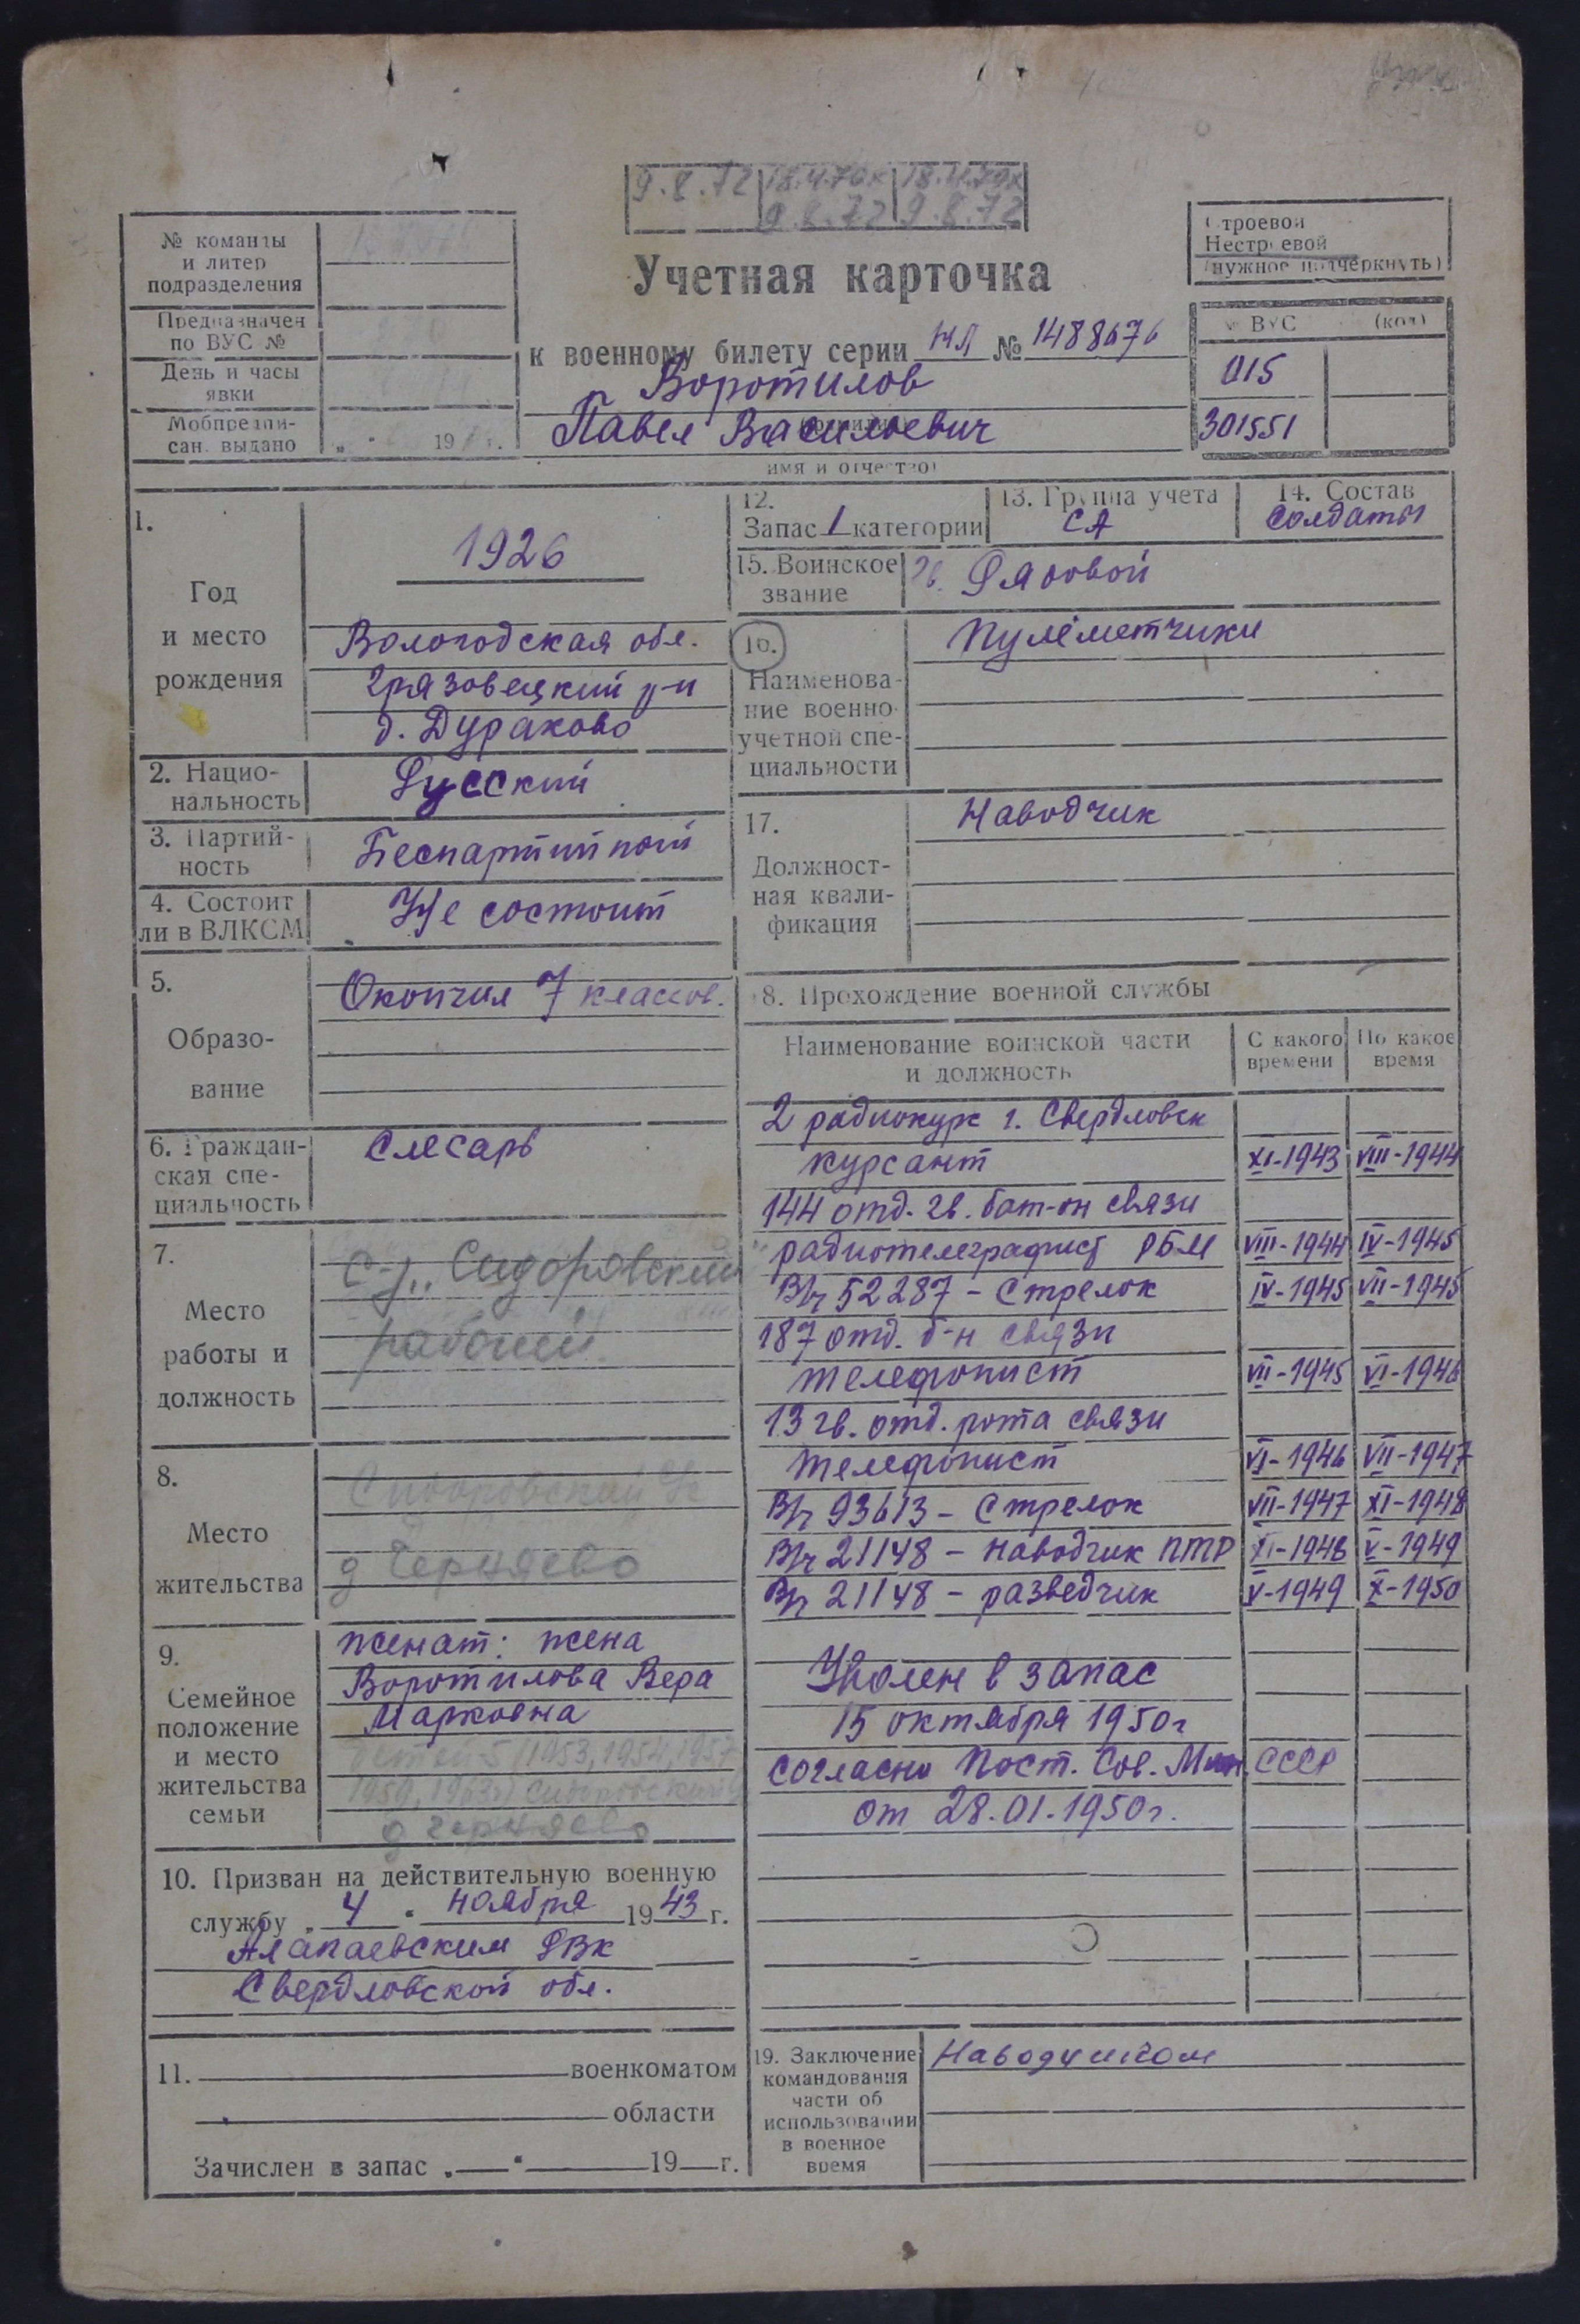 9.8.72 18.4.70 18.4.79
9.8.72 9.8.72
№ команды
и литер
подразделения
Предназначен
по ВУС №
День и часы
явки
Мобпредпи-
сан. выдано „ “ 19 г.
Учетная карточка
к военному билету серии НЛ № 1488676
Воротилов
(фамилия)
Павел Васильевич
имя и отчество)
Строевой
Нестроевой
(нужное подчеркнуть)
№ ВУС (код)
015
301551
1.
Год
и место
рождения
1926
Вологодская обл.
Грязовецкий р-н
д. Дураково
2. Нацио-
нальность
Русский
3. Партий-
ность
Беспартийный
4. Состоит
ли в ВЛКСМ
Не состоит
5.
Образо-
вание
Окончил 7 классов.
6. Граждан-
ская спе-
циальность
Слесарь
7.
Место
работы и
должность
С-з „Сидоровский"
рабочий
8.
Место
жительства
Сидоровский
д Черняево
9.
Семейное
положение
и место
жительства
семьи
женат: жена
Воротилова Вера
Марковна
детей-5 (1953, 1954, 1957
1959, 1963г) Сидоровский
д Черняево
10. Призван на действительную военную
службу „ 4 “ ноября 1943 г.
Алапаевским РВК
Свердловской обл.
11. военкоматом
области
Зачислен в запас „ “ 19 г.
12.
Запас 1 категории
13. Группа учета
СА
14. Состав
солдаты
15. Воинское
звание
гв. Рядовой
16.
Наименова-
ние военно-
учетной спе-
циальности
Пулеметчики
17.
Должност-
ная квали-
фикация
Наводчик
18. Прохождение военной службы
Наименование воинской части
и должность
С какого
времени
По какое
время
2 радиокурс г. Свердловск
курсант XI-1943 VIII-1944
144 отд. гв. бат-он связи
радиотелеграфист РБМ VIII-1944 IV-1945
В/ч 52287 - Стрелок IV-1945 VII-1945
187 отд. б-н связи
телефонист VII-1945 VI-1946
13 гв. отд. рота связи
телефонист VI-1946 VII-1947
В/ч 93613 - Стрелок VII-1947 XI-1948
В/ч 21148 - наводчик ПТР XI-1948 V-1949
В/ч 21148 - разведчик V-1949 X-1950
Уволен в запас
15 октября 1950г
согласно Пост. Сов. Мин. СССР
от 28.01.1950г.
19. Заключение
командования
части об
использовании
в военное
время
Наводчиком